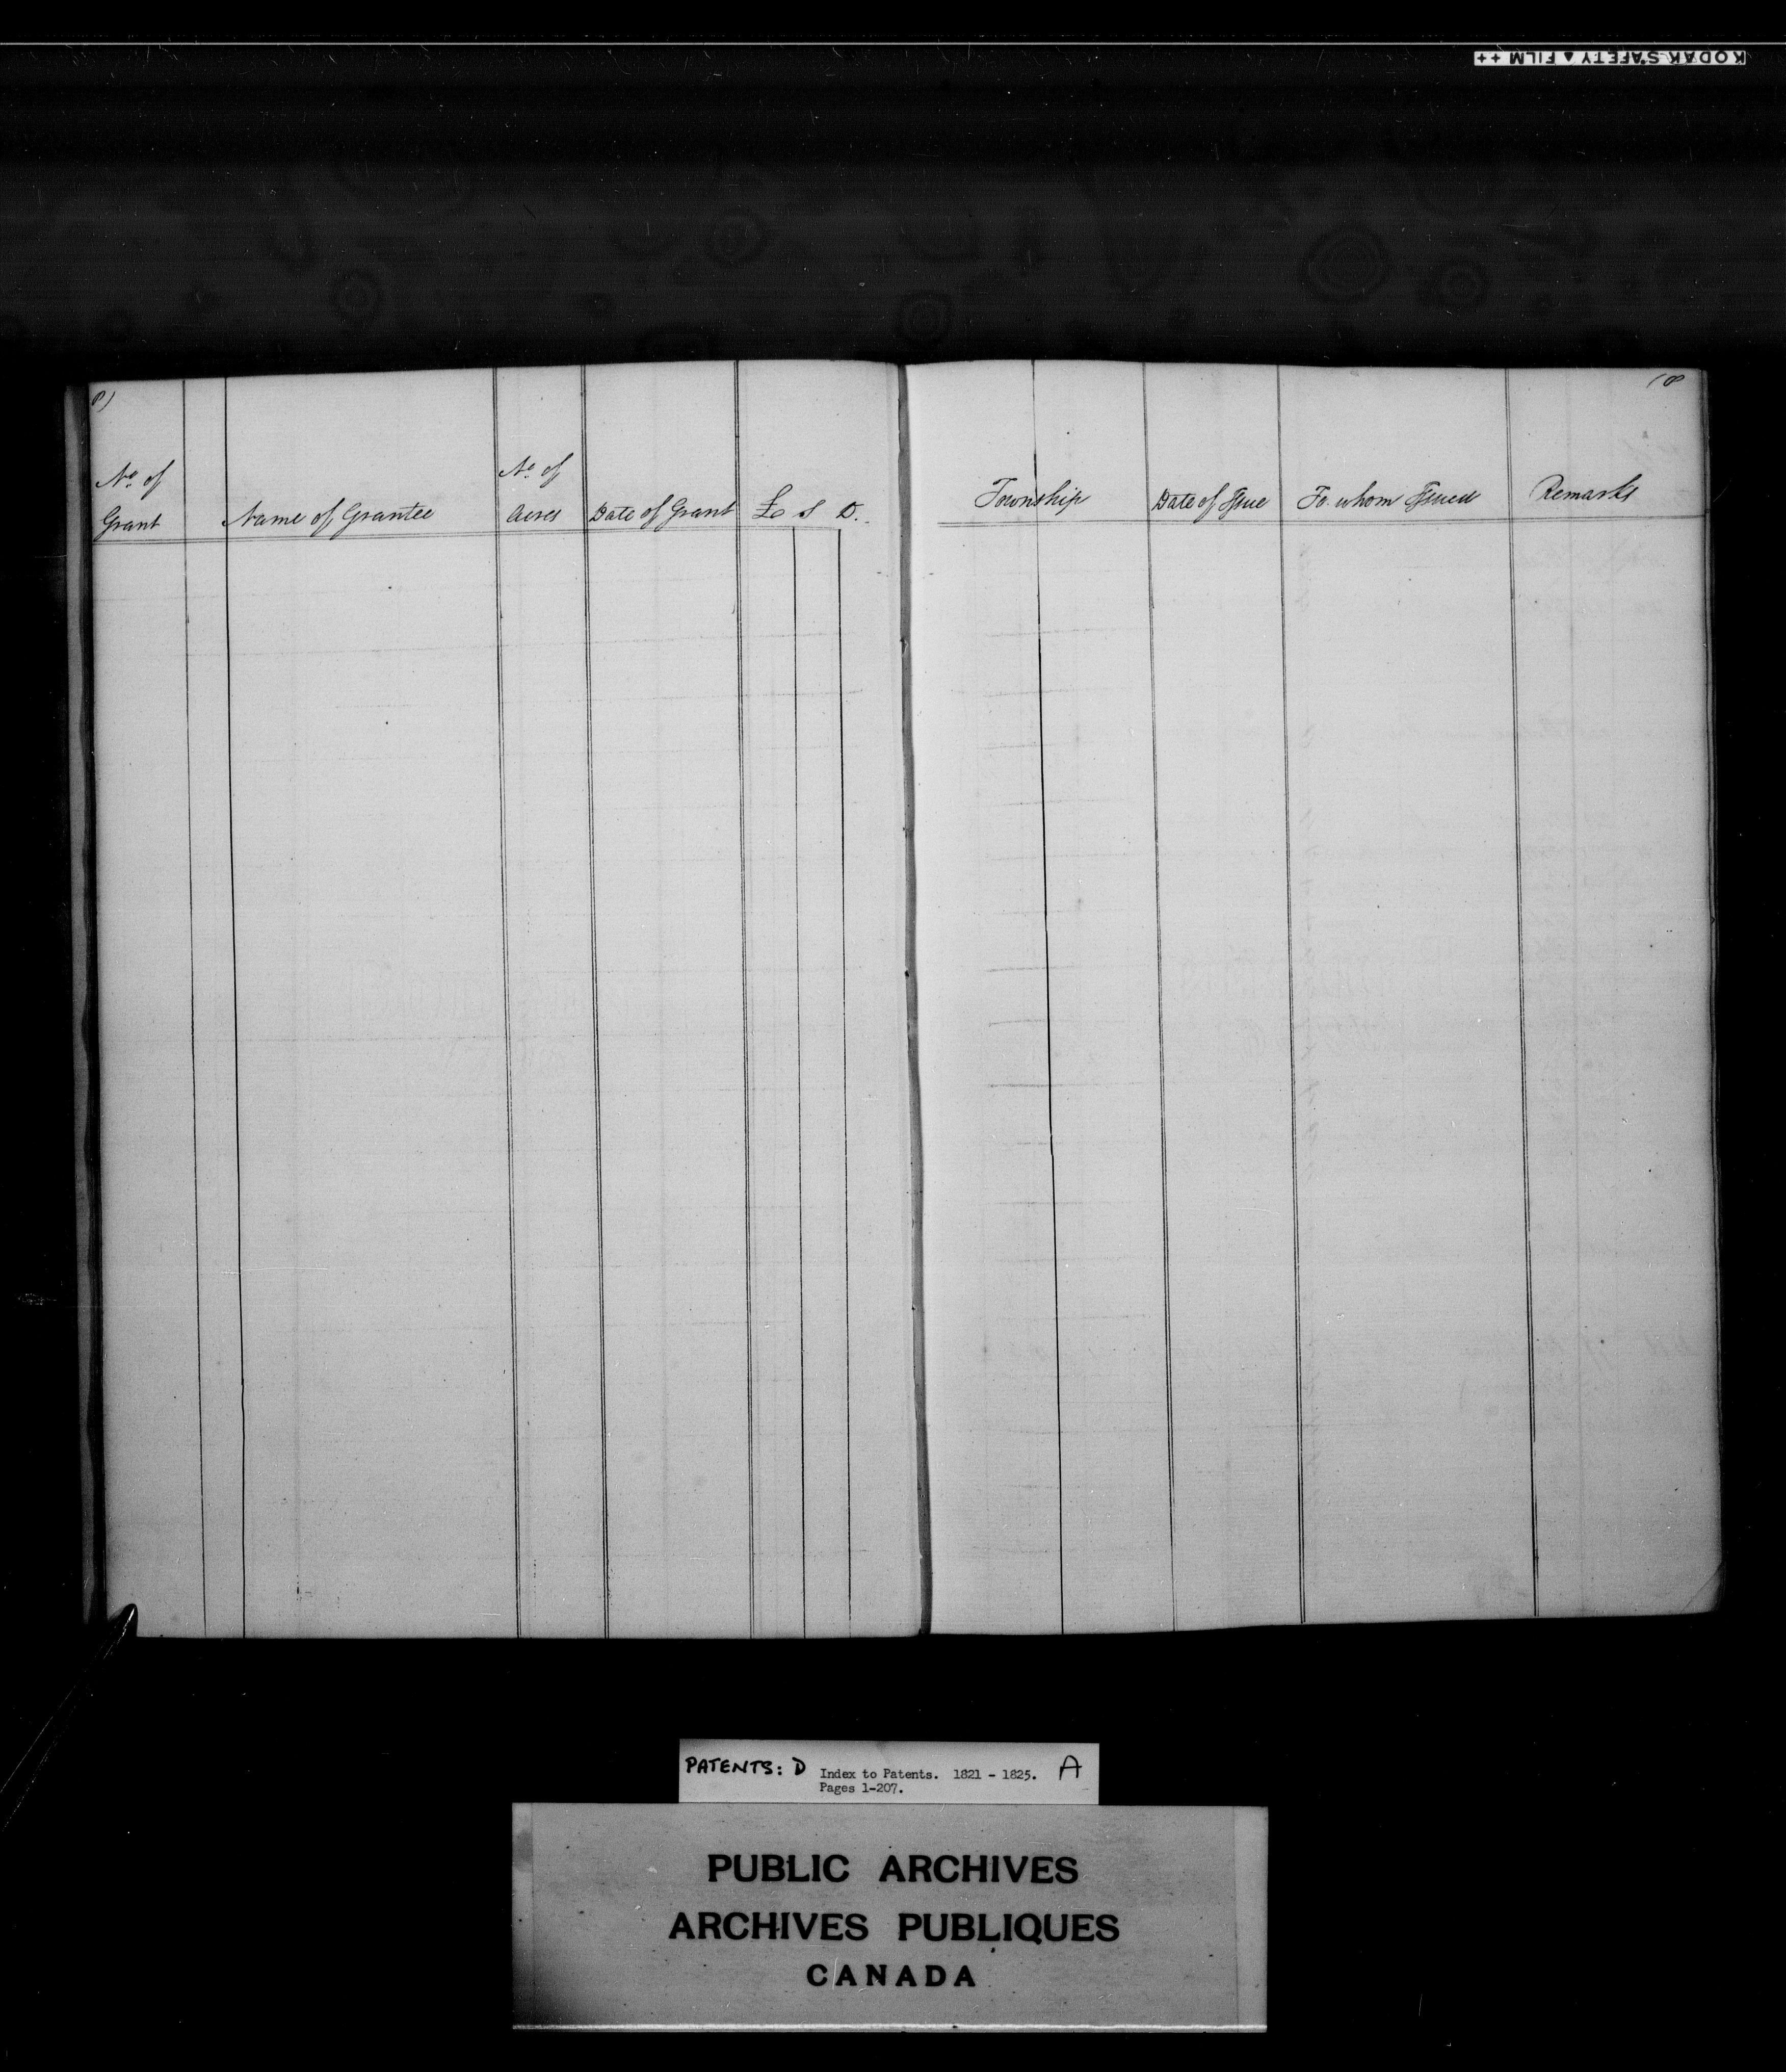 KODAK SAFETY ▲ FILM ++
8)
(8
No. of
Grant
Name of Grantee
No. of
Acres
Date of Grant
£ S D.
Township
Date of Issue
To whom Issued
Remarks
PATENTS: D Index to Patents. 1821 - 1825. A
Pages 1-207.
PUBLIC ARCHIVES
ARCHIVES PUBLIQUES
CANADA